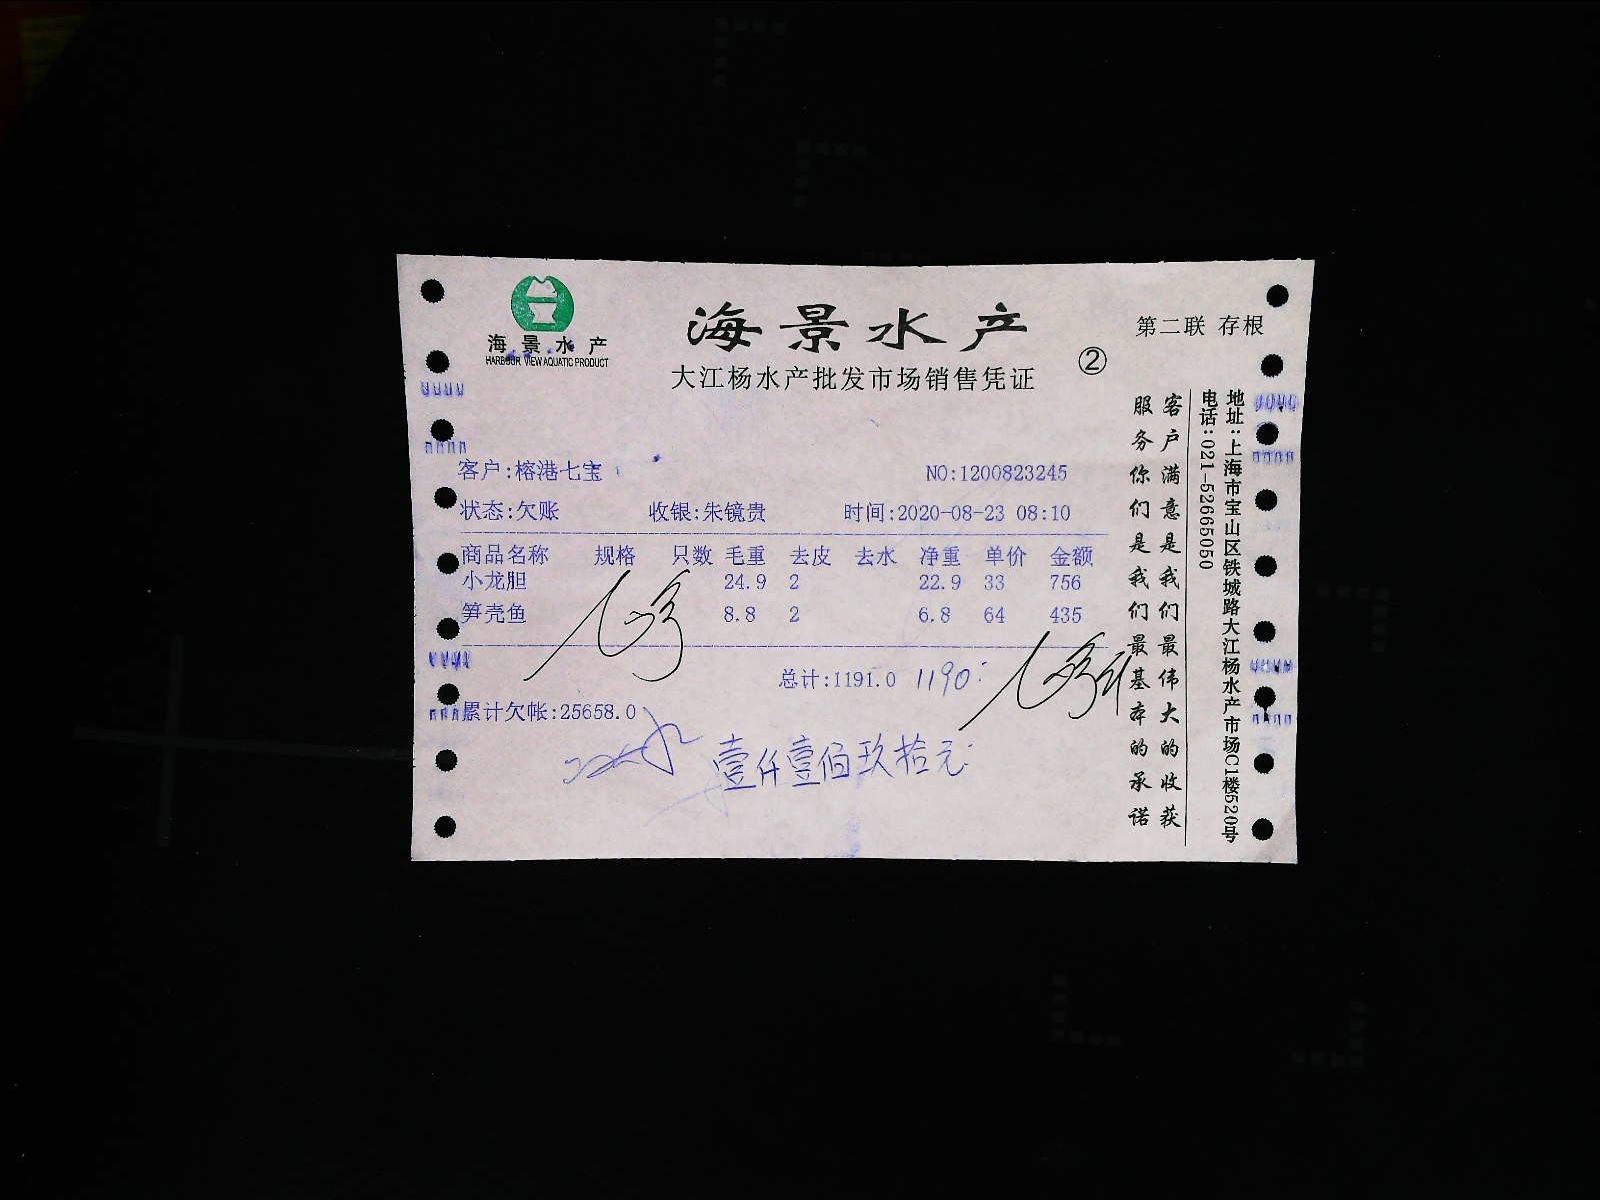 海景水产
HARBOUR VIEW AQUATIC PRODUCT
海景水产
大江杨水产批发市场销售凭证
②
第二联 存根
客户:榕港七宝
NO:1200823245
状态:欠账 收银:朱镜贵 时间:2020-08-23 08:10
商品名称 规格 只数 毛重 去皮 去水 净重 单价 金额
小龙胆 24.9 2 22.9 33 756
笋壳鱼 8.8 2 6.8 64 435
总计:1191.0 1190.
累计欠帐:25658.0
壹仟壹佰玖拾元.
客户满意是我们最伟大的收获
服务你们是我们最基本的承诺
地址:上海市宝山区铁城路大江杨水产市场C1楼520号
电话:021-52665050